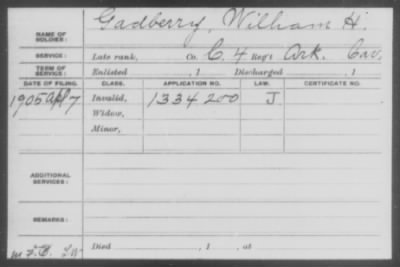 NAME OF SOLDIER: Gadberry, William H.
SERVICE: Late rank, Co. C. 4 Reg't Ark. Cav.
TERM OF SERVICE: Enlisted , 1 Discharged , 1
DATE OF FILING. CLASS. APPLICATION NO. LAW. CERTIFICATE NO.
1905 Apl 7 Invalid, 1334200 J
Widow,
Minor,
ADDITIONAL SERVICES:
REMARKS:
Died , 1 , at